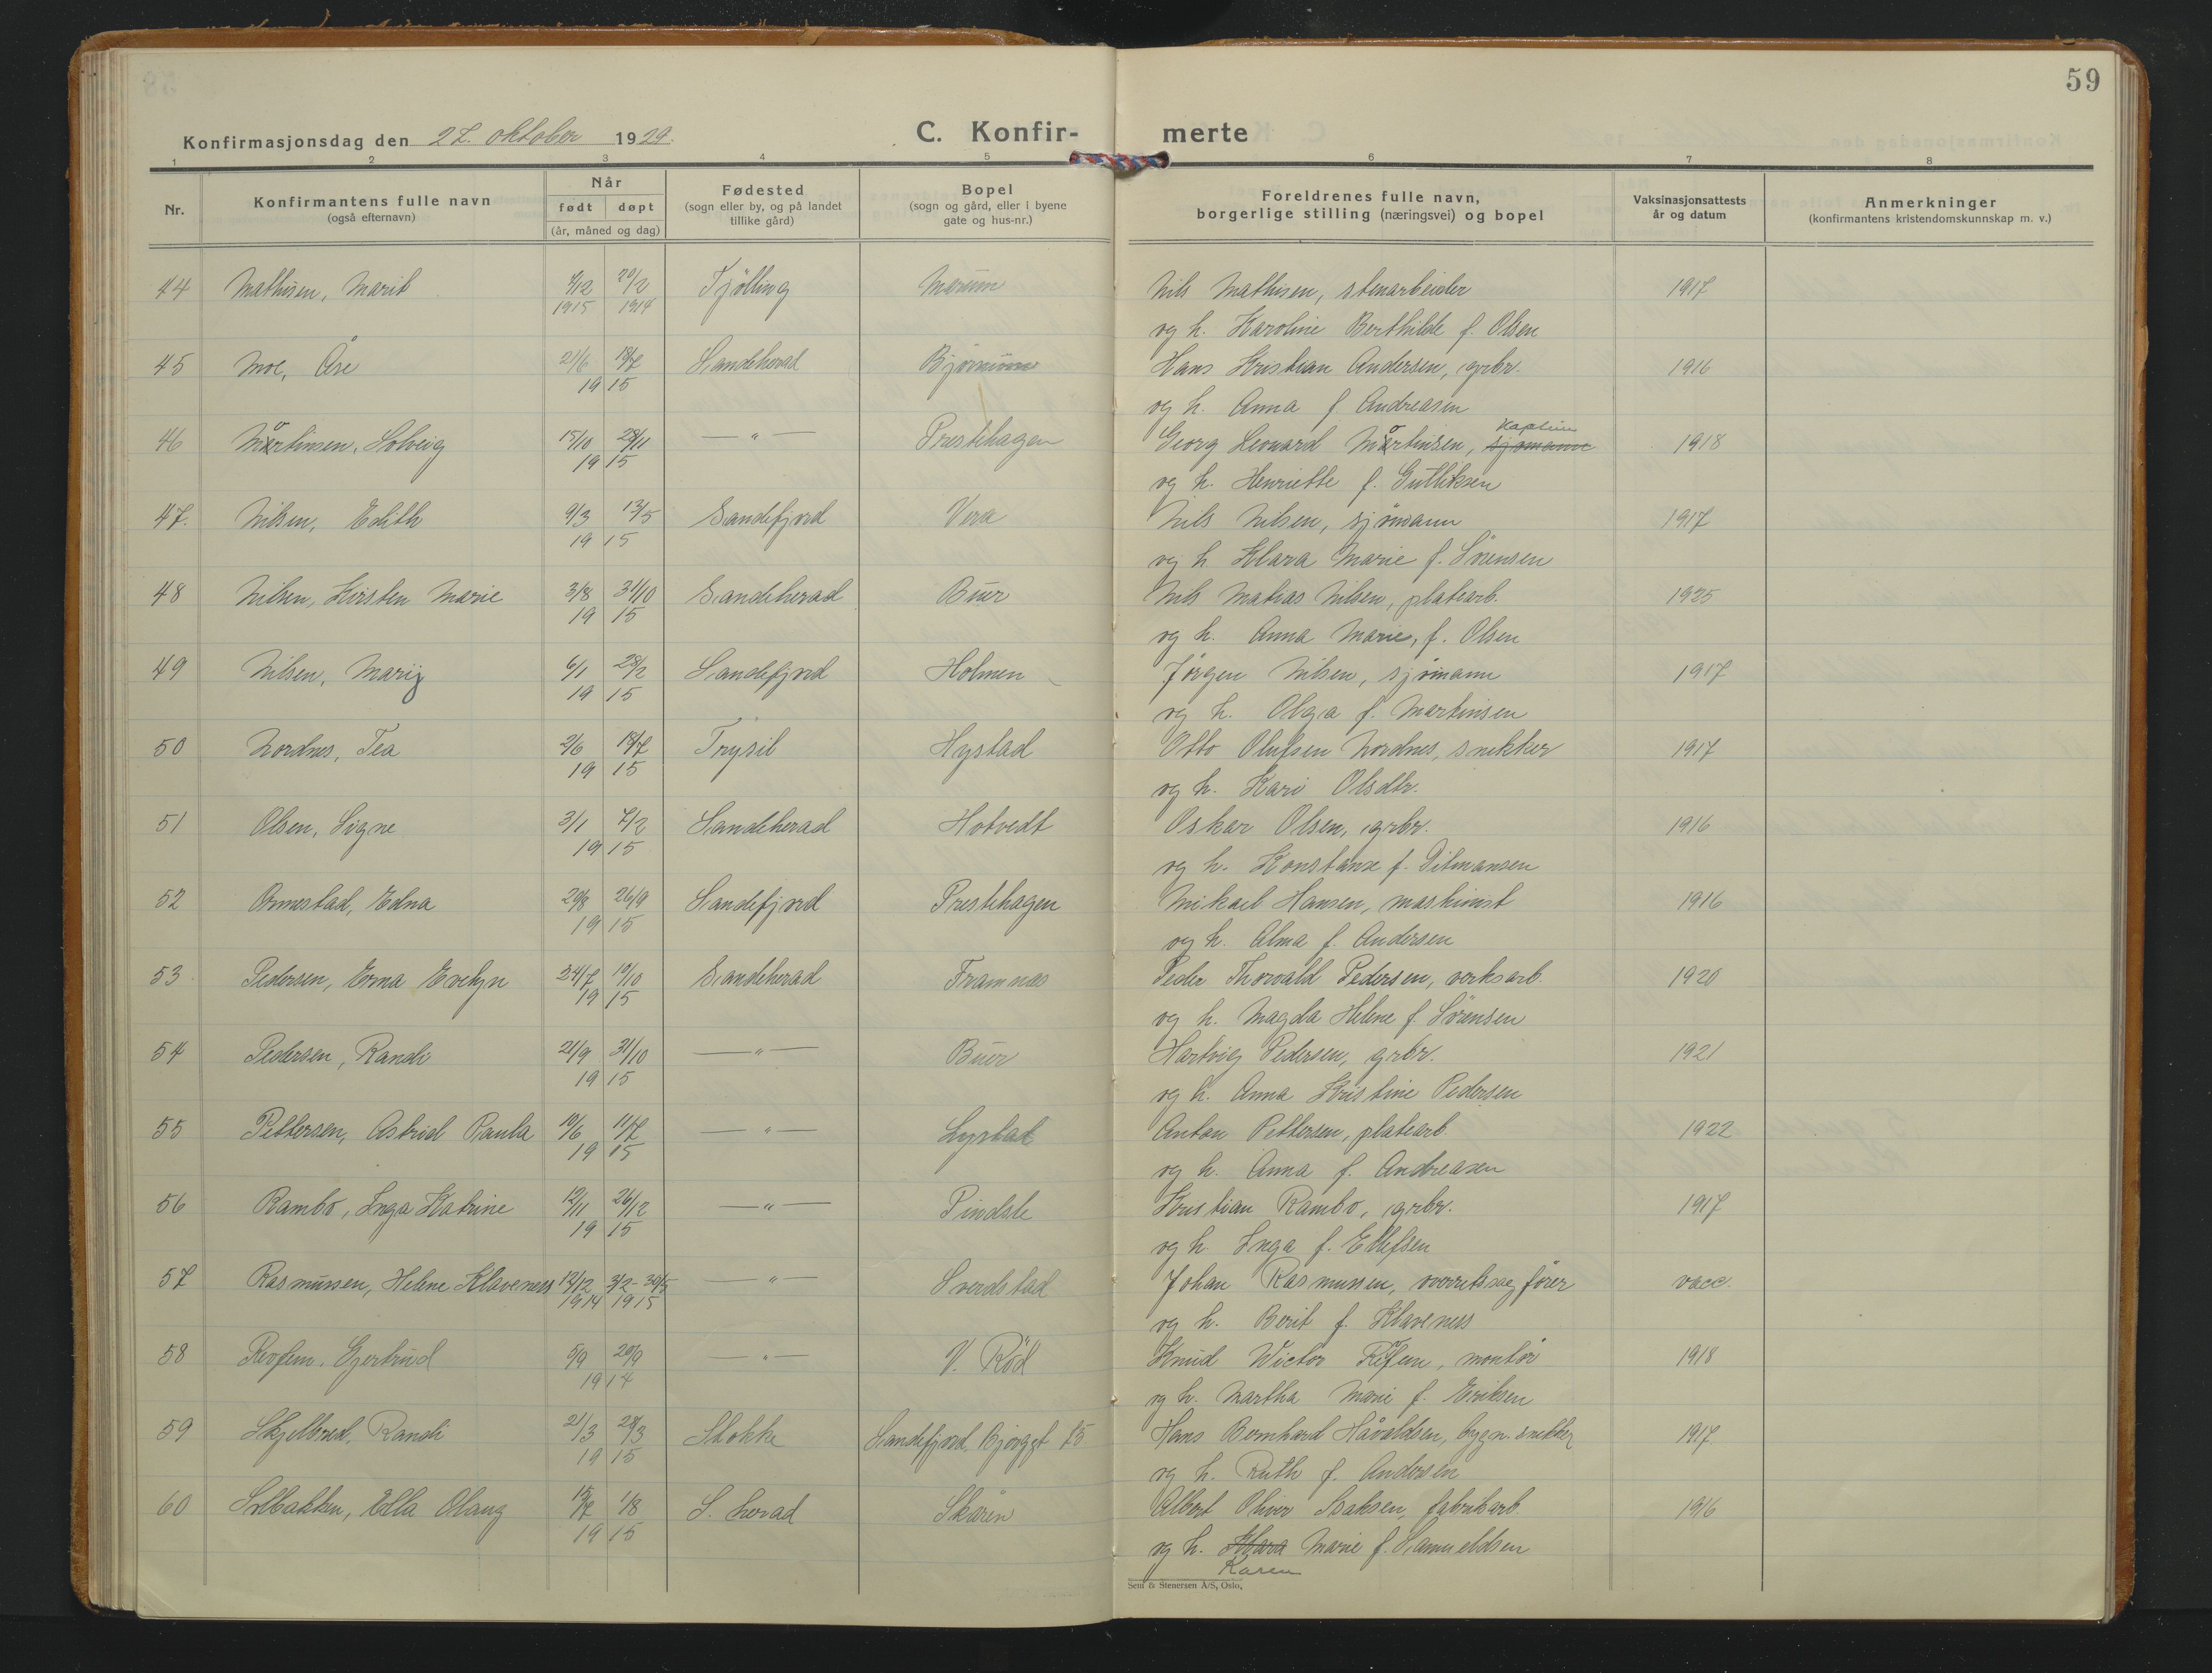 59
Konfirmasjonsdag den 27. oktober 1929.
C. Konfir- merte
1 2 3 4 5 6 7 8
Nr.
Konfirmantens fulle navn
(også efternavn)
Når
født døpt
(år, måned og dag)
Fødested
(sogn eller by, og på landet
tillike gård)
Bopel
(sogn og gård, eller i byene
gate og hus-nr.)
Foreldrenes fulle navn,
borgerlige stilling (næringsvei) og bopel
Vaksinasjonsattests
år og datum
Anmerkninger
(konfirmantens kristendomskunnskap m. v.)
44 Mathisen, Marit 20/2 Tjølling Nils Mathisen, stenarbeider 1917
1915 1914 og h. Karoline Berthilde f. Olsen
45 Moe, Åse 21/6 18/7 Sandeherad Bjørnum Hans Kristian Andersen, grbr. 1916
19 15 og h. Anna f. Andreasen
46 Mørtinsen, Solveig 15/10 28/11 — " — Prestehagen Georg Leonard Mørtinsen, sjømann kaptein 1918
19 15 og h. Henriette f. Gulliksen
47. Nilsen, Edith 9/3 13/5 Sandefjord Vera Nils Nilsen, sjømann 1917
19 15 og h Klara Marie f. Sørensen
48 Nilsen, Kirsten Marie 3/8 31/10 Sandeherad Buer Nils Matias Nilsen, platearb. 1925
19 15 og h. Anna Marie, f. Olsen
49 Nilsen, Marij 6/1 28/2 Sandefjord Holmen Jørgen Nilsen, sjømann 1917
19 15 og h. Olga f. Martinsen
50 Nordnes, Tea 2/6 18/7 Trysil Hystad Otto Olufsen Nordnes, snekker 1917
19 15 og h. Kari Olsdtr.
51 Olsen, Signe 3/1 7/2 Sandeherad Hotvedt Oskar Olsen, grbr. 1916
19 15 og h. Konstanse f. Ditmansen
52 Ormestad, Edna 29/8 26/9 Sandefjord Prestehagen Mikael Hansen, maskinist 1916
19 15 og h. Alma f. Andersen
53 Pedersen, Erna Evelyn 24/7 10/10 Sandeherad Framnæs Peder Thorvald Pedersen, verksarb. 1920
19 15 og h. Magda Helene f. Sørensen
54 Pedersen, Randi 21/9 31/10 — " — Buer Hartvig Pedersen, grbr. 1921
19 15 og h. Anna Kristine Pedersen
55 Pettersen, Astrid Paula 10/6 11/7 — " — Lystad Anton Pettersen, platearb. 1922
19 15 og h. Anna f. Andreasen
56 Rambo, Inga Katrine 12/11 26/12 — " — Pindsle Kristian Rambo, grbr. 1917
19 15 og h. Inga f. Ellefsen
57 Rasmussen, Helene Klaveness 12/12 3/2-30/5 — " — Sverdstad Johan Rasmussen, overretssagfører vacc.
1914 1915 og h. Borit f. Klaveness
58 Revfem, Gjertrud 5/9 20/9 — " — V. Rød Knud Wictor Refem, montør 1918
19 14 og h. Martha Marie f. Eriksen
59 Skjelbred, Randi 21/3 28/3 Stokke Sandefjord, Bjerggt 15 Hans Bernhard Håvaldsen, bygn. snekker 1917
19 15 og h. Ruth f. Andersen
60 Solbakken, Ella Olaug 15/7 1/8 S. herad Skåren Albert Oliver Isaksen, fabrikarb. 1916
19 15 og h. Klara Marie f. Samueldsen
Karen
Sem & Stenersen A/S, Oslo.